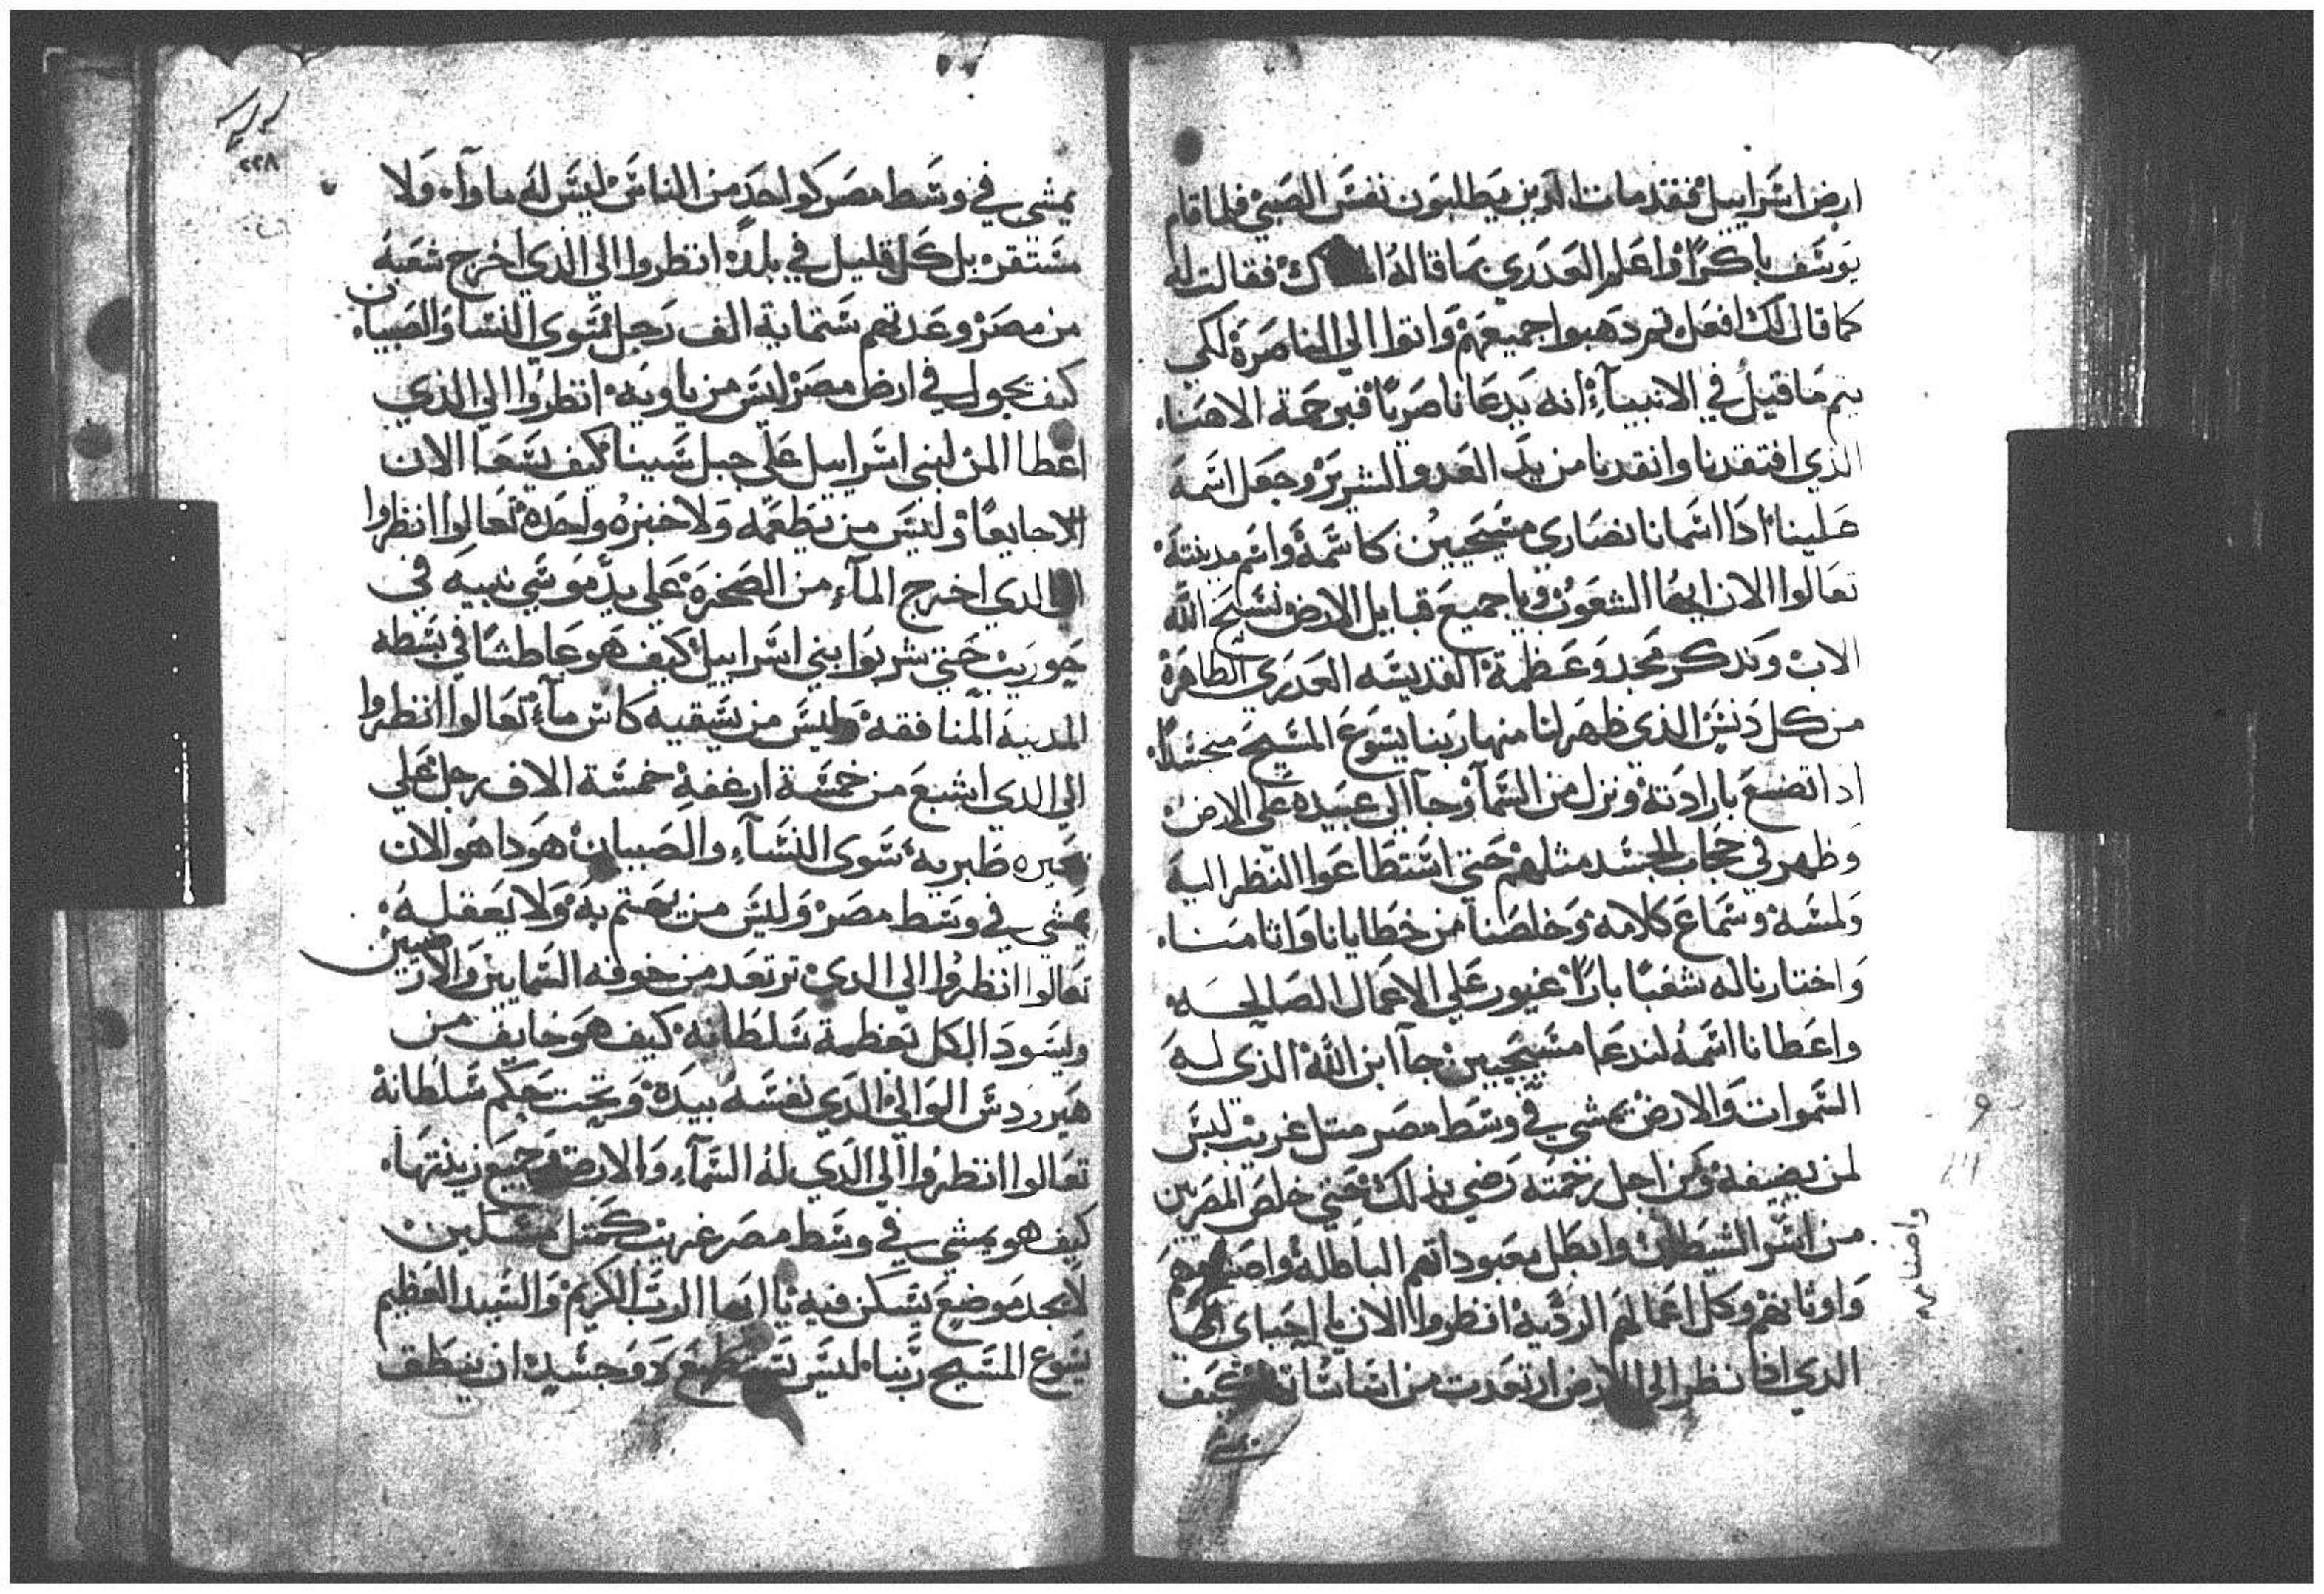 ارض اسراييل فقد ماتا الدين يطلبون نفس الصبي فلما قام
يوسف باكرًا واعلم العدري بما قاله الملاك فقالت له
كما قال لك افعل تم دهبوا جميعهم واتوا الي الناصرة لكي
يتم ما قيل في الانبيآء انه يدعا ناصريًا فبرحمة الاهنا
الذي افتقدنا وانقدنا من يد العدو الشرير وجعل اسمه
علينا ادا اسمانا نصاري مسيحيين كاسمه واسم مدينته
تعالوا الان ايها الشعوب ويا جميع قبايل الارض نسبح الله
الاب وندكر مجد وعظمة القديسه العدري الطاهرة
من كل دنس الذي ظهر لنا منها ربنا يسوع المسيح متجسدًا
ادا اتضع بارادته ونزل من السمآ وجآ الي عبيده علي الارض
وظهر في حجاب الجسد مثلهم حتي استطاعوا النظر اليه
ولمسه وسماع كلامه وخلصنا من خطايانا واثامنا
واختارنا له شعبًا بارًا غيور علي الاعمال الصالحه
واعطانا اسمه لندعا مسيحيين جآ ابن الله الذي له
السموات والارض يمشي في وسط مصر متل غريب ليس
لمن يضيفه ومن اجل رحمته رضي بدلك حتي خلص المصريين
من اسر الشيطان وابطل معبوداتهم الباطلة واصنامهم
واصنامهم
واوثانهم وكل اعمالهم الرديه انظروا الان يا احباي الي
الدي ادا نظر الي الارض ارتعدت من اساساتها كيف
يمشي
٢٢٨
يمشي في وسط مصر كواحد من الناس ليس له ماوآ ولا
مستقر بل كل قليل في بلده انظروا الي الذي اخرج شعبه
من مصر وعدتهم ستماية الف رجل سوي النسا والصبيان
كيف يجول في ارض مصر ليس من ياويه انظروا الي الذي
اعطا المن لبني اسراييل علي جبل سينا كيف يسعا الان
جايعًا وليس من يطعمه ولا خبزه واحده تعالوا انظروا
الي الدي اخرج المآء من الصخره علي يد موسي نبيه في
حوريب حتي شربوا بني اسراييل كيف هو عاطشًا في بسطه
المدينة المنافقه وليس من يسقيه كاس مآء تعالوا انظروا
الي الدي اشبع من خمسة ارغفة خمسة الاف رجل علي
بحيره طبريه سوى النسآء والصبيان هودا هو الان
يمشي في وسط مصر وليس من يهتم به ولا يعقله
تعالوا انظروا الي الدي ترتعد من خوفه السمايين والارضيين
ويسود الكل بعظمة سلطانه كيف هو خايف من
هيرودس الوالي الدي نفسه بيده وتحت حكم سلطانه
تعالوا انظروا الي الدي له السمآء والارض وجميع زينتها
كيف هو يمشي في وسط مصر غريب كمتل مسكين
لا يجد موضع يسكن فيه يا ايها الرب الكريم والسيد العظيم
يسوع المسيح ربنا ليس يستطيع دو جسد ان ينطق